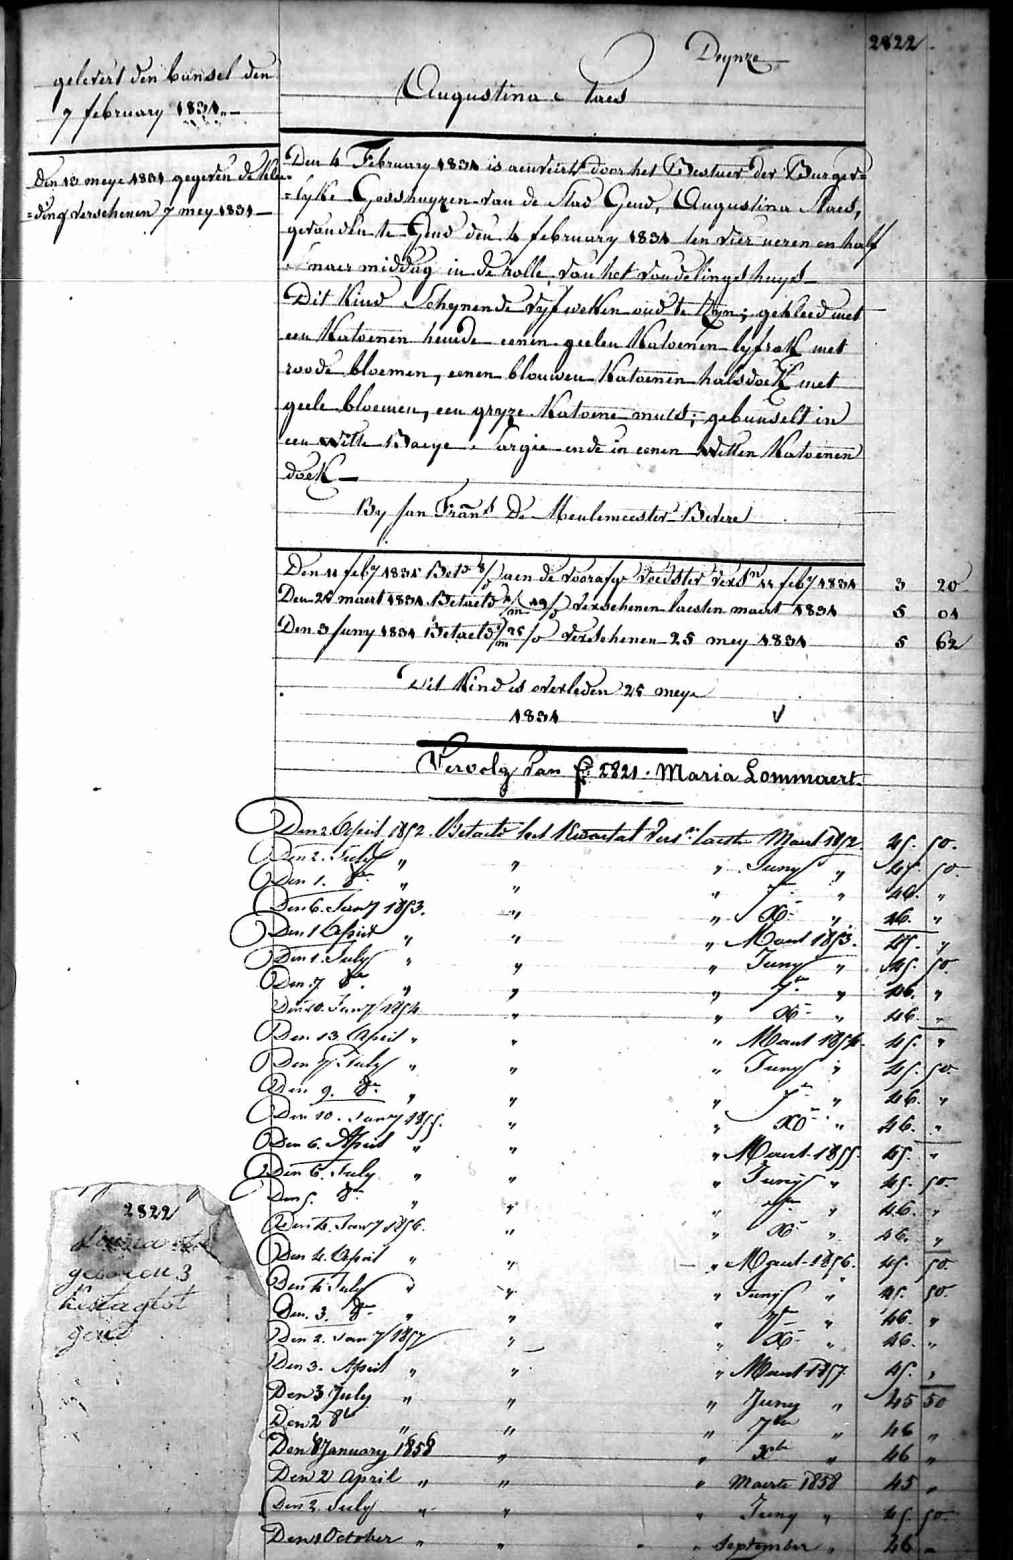 2822
Deynze
gelevert den bunsel den
7 february 1834
Augustina Staes
Den 13 meye 1834 gegeven de klee=
=ding verschenen 7 mey 1834
Den 4 February 1834 is aenveirt door het Bestuer der Burger=
=lyke Godshuyzen van de Stad Gend, Augustina Staes,
gevonden te Gend den 4 february 1834 ten vier ueren en half
naer middag in de rolle van het vondelingshuys
Dit Kind schynende vyf weken oud te zyn; gekleed met
een Katoenen hemde eenen geelen Katoenen lyfrok met
roode bloemen, eenen blouwen Katoenen halsdoek met
geele bloemen, een gryze Katoene muts; gebunselt in
een witte Baeye Sargie ende in eenen Witten Katoenen
doek
By Jan Frans De Meulemeester Bevere
Den 11 feby 1834 Bet aen de voorafge voedster versn 11 feby 1834 3 20
Den 28 maert 1834 Betaelt verschenen laesten maert 1834 5 04
Den 3 Juny 1834 Betaelt verschenen 25 mey 1834 5 62
Dit Kind is overleden 25 meye
1834
Vervolg van f° 2821. Maria Lommaert.
Den 2 April 1852. Betaelt het Kwartael vers: laeste Maert 1852. 45. 50.
Den 2. July " " " Juny " 45. 50.
Den 1. 8er " " " 7er " 46. "
Den 6. Jany 1853. " " X " 46. "
Den 1 April " " " Maert 1853. 45. "
Den 1. July " " " Juny " 45. 50
Den 7 8er " " " 7er " 46. "
Den 10. Jany 1854 " " X " 46. "
Den 13. April " " " Maert 1854. 45. "
Den 7. July " " " Juny " 45. 50.
Den 9. 8er " " " 7er " 46. "
Den 10. Jany 1855. " " X " 46. "
Den 6. April " " " Maert 1855. 45. "
Den 6. July " " " Juny " 45. 50.
Den 5. 8er " " " 7er " 46. "
Den 4. Jany 1856. " " X " 46. "
Den 4. April " " " Maert 1856. 45. 50.
Den 4 July " " " Juny " 45. 50
Den. 3. 8er " " " 7er " 46. "
Den 2. Jany 1857 " " X " 46. "
Den 3. April " " " Maert 1857 45. "
Den 3 July " " " Juny " 45 50
Den 2 8er " " " 7ber " 46 "
Den 8 January 1858 " " Xber " 46 "
Den 2 April " " " Maerte 1858 45 "
Den 2. July " " " Juny " 45. 50.
Den 1 October " " " September " 46 "
2822
geboren 3
gend